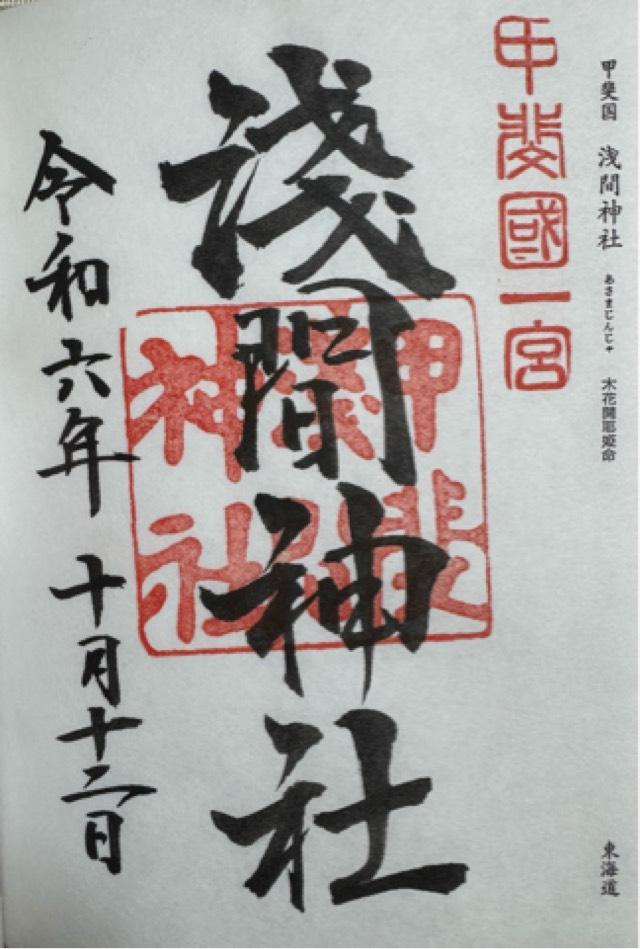 甲斐国 浅間神社 あさまじんじゃ 木花開耶姫命
東海道
甲斐國一宮
淺間神社
甲斐
神社
令和六年 十月十二日